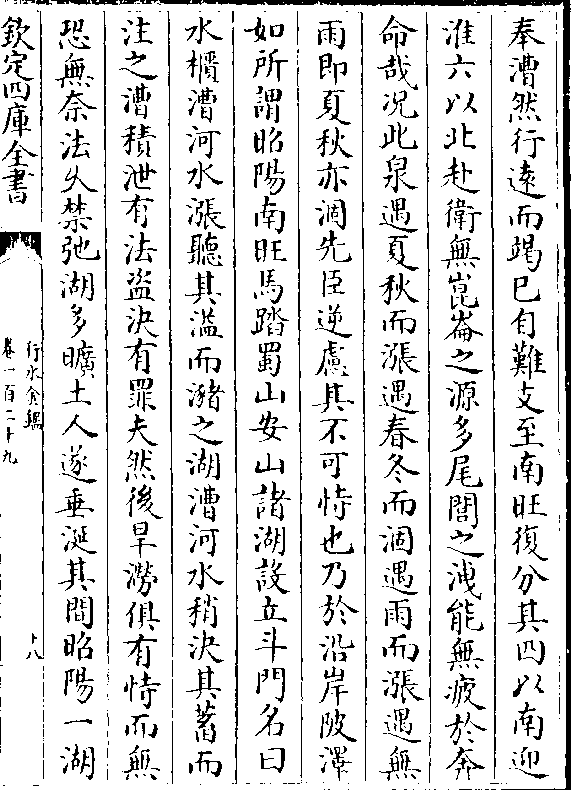 奉漕然行遠而竭已自難支至南旺復分其四以南迎
淮六以北赴衛無崑崙之源多尾閭之洩能無疲於奔
命哉况此泉遇夏秋而漲遇春冬而涸遇雨而漲遇無
雨即夏秋亦涸先臣逆慮其不可恃也乃於沿岸陂澤
如所謂昭陽南旺馬踏蜀山安山諸湖設立斗門名曰
水櫃漕河水漲聽其溢而瀦之湖漕河水稍決其蓄而
注之漕積泄有法盜決有罪夫然後旱澇俱有恃而無
恐無奈法久禁弛湖多曠土人遂垂涎其間昭陽一湖
欽定四庫全書
行水金鑑
卷一百二十九
十八